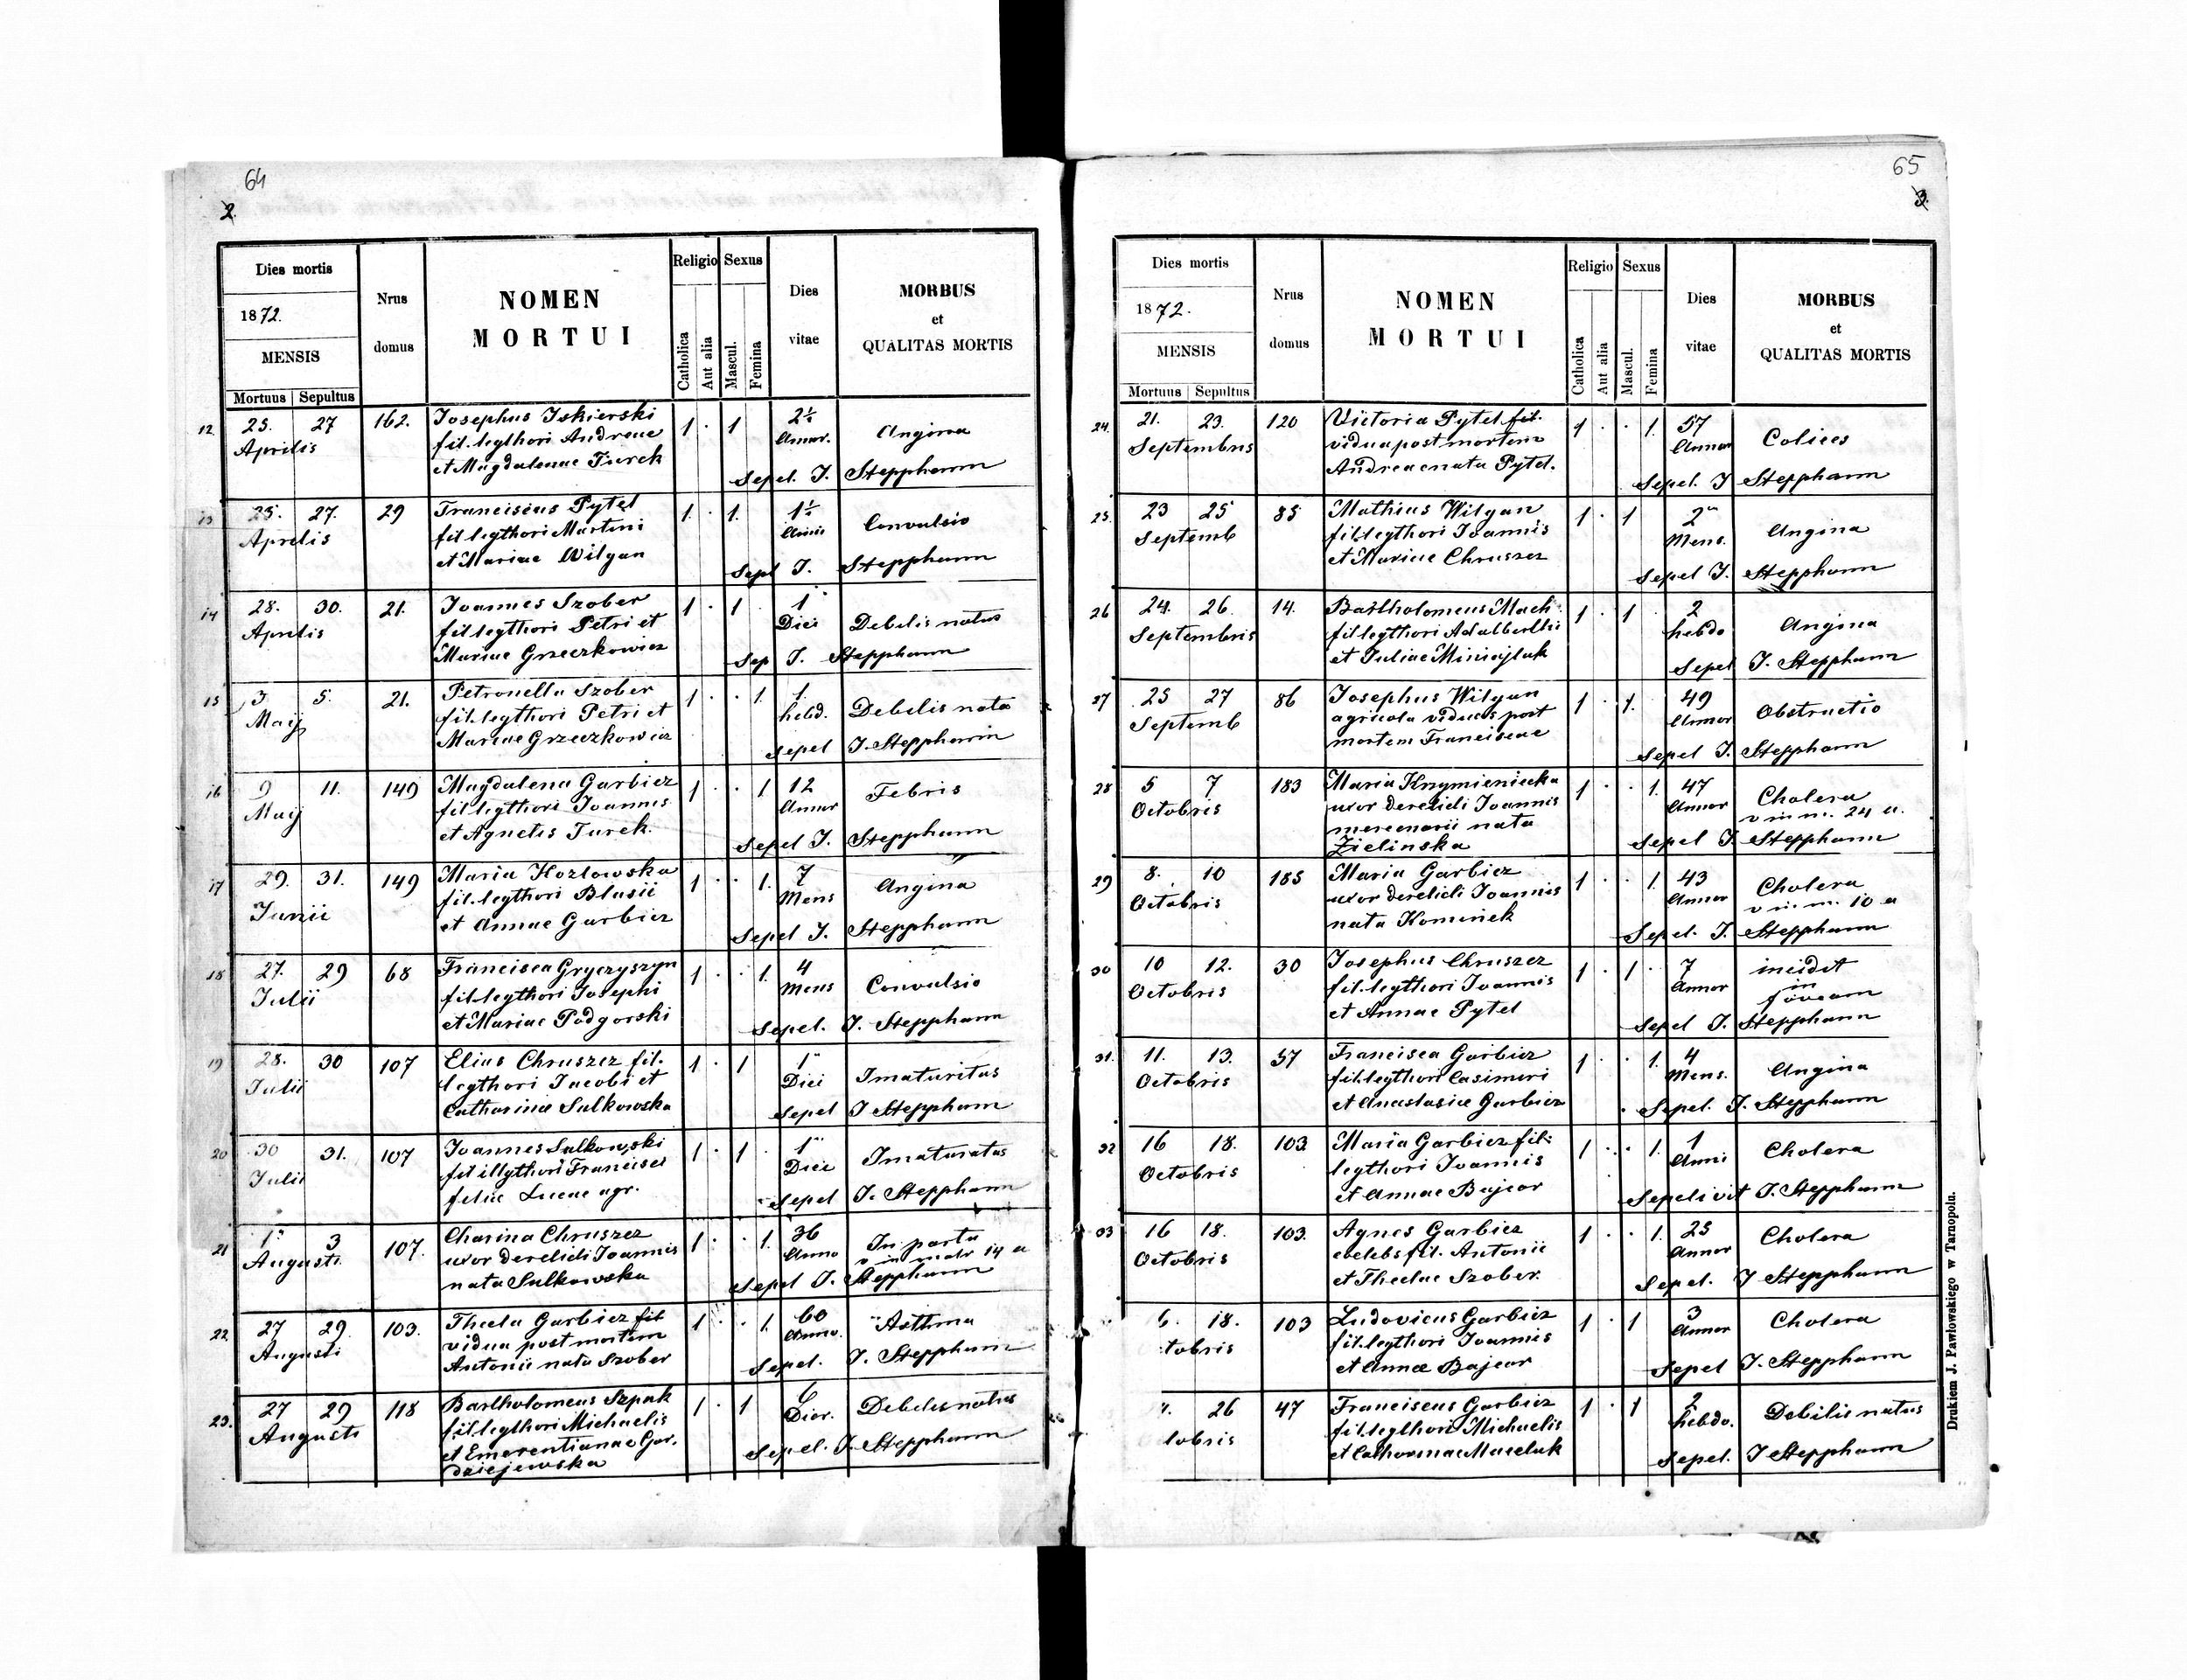 64
2.
Dies mortis
1872.
MENSIS
Mortuus Sepultus
Nrus domus
NOMEN
MORTUI
Religio
Catholica
Aut alia
Sexus
Mascul.
Femina
Dies vitae
MORBUS
et
QUALITAS MORTIS
12. 25. 27 162. Josephus Iskierski 1 · 1 2½
Aprilis fil. legthori Andreae Annor. Angina
et Magdalenae Turek
Sepel. J. Stepphann
13 25. 27. 29 Franciscus Pytel 1. · 1. 1½
Aprilis fil legthori Martini Anni Convulsio
et Mariae Wilgan
Sepl J. Stepphann
14 28. 30. 21. Joannes Szober 1 · 1 1
Aprilis fil legthori Petri et Diei Debilis natus
Mariae Grzeczkowicz
Sep J. Stepphann
15 3 5. 21. Petronella Szober 1 · · 1. 1.
Maij fil. legthori Petri et hebd. Debilis nata
Mariae Grzeczkowicz
Sepel J. Stepphann
16 9 11. 149 Magdalena Garbicz 1 · · 1 12
Maij fil legthori Joannis Annor Febris
et Agnetis Turek.
Sepel J. Stepphann
17 29. 31. 149 Maria Kozlowska 1 · · 1. 7
Junii fil. legthori Blasii Mens Angina
et Annae Garbicz
Sepel J. Stepphann
18 27. 29 68 Francisca Gryczyszyn 1 · · 1. 4
Julii fil. legthori Josephi Mens Convulsio
et Mariae Podgorski
Sepel. J. Stepphann
19 28. 30 107 Elias Chruszcz fil. 1 · 1 1
Julii legthori Jacobi et Diei Imaturitas
Catharinae Sulkowska
Sepel J Stepphann
20 30 31. 107 Joannes Sulkowski 1 · 1 1
Julii fil illgthori Francisci Diei Imaturitas
filiae Lucae agr.
Sepel J. Stepphann
21 1 3 107. Charina Chruszcz 1 · · 1. 36
Augusti uxor derelicti Joannis Anno In partu
nata Sulkowska v in matr 14 a
Sepel J. Stepphann
22 27 29 103. Thecla Garbicz fil 1 · · 1. 60
Augusti vidua post mortem Anno. Asthma
Antonii nata Szober
Sepel. J. Stepphann
23. 27 29 118 Bartholomeus Szpak 1 · 1 6
Augusti fil legthori Michaelis Dier. Debilis natus
et Emerentianae Gor.
dziejewska
Sepel. J. Stepphann
65
3.
Dies mortis
1872.
MENSIS
Mortuus Sepultus
Nrus domus
NOMEN
MORTUI
Religio
Catholica
Aut alia
Sexus
Mascul.
Femina
Dies vitae
MORBUS
et
QUALITAS MORTIS
24. 21. 23. 120 Victoria Pytel fil. 1 · · 1. 57
Septembris vidua post mortem Annor Colices
Andreae nata Pytel.
Sepel. J Stepphann
25. 23 25 85 Mathius Wilgan 1 · 1 2
Septemb fil. legthori Joannis Mens. Angina
et Mariae Chruszcz
Sepel J. Stepphann
26 24. 26. 14. Bartholomeus Mach 1 · 1 2
Septembris fil legthori Adalberthi hebdo Angina
et Juliae Miniajluk
Sepel J. Stepphann
27 25 27 86 Josephus Wilgan 1 · 1. 49
Septemb agricola viduus post Annor Obstructio
mortem Franciscae
Sepel J. Stepphann
28 5 7 183 Maria Krzymieniecka 1 · · 1. 47
Octobris uxor derelicti Joannis Annor Cholera
mercenarii nata v in m. 24 a.
Zielinska
Sepel J. Stepphann
29 8. 10 185 Maria Garbicz 1 · · 1. 43
Octobris uxor derelicti Joannis Annor Cholera
nata Kominek v in m. 10 a
Sepel. J. Stepphann
30 10 12. 30 Josephus Chruszcz 1 · 1 · 7 incidit
Octobris fil. legthori Joannis Annor in
et Annae Pytel foveam
Sepel J. Stepphann
31. 11. 13. 57 Francisca Garbicz 1 · · 1. 4
Octobris fil. legthori Casimiri Mens. Angina
et Anastasiae Garbicz
Sepel. J. Stepphann
32 16 18. 103. Maria Garbicz fil. 1 · · 1. 1
Octobris legthori Joannis Anni Cholera
et Annae Bajcar
Sepelivit J. Stepphann
33 16 18. 103. Agnes Garbicz 1 · · 1. 25
Octobris coelebs fil. Antonii Annor Cholera
et Theclae Szober.
Sepel. J Stepphann
6. 18. 103 Ludovicus Garbicz 1 · 1 3
tobris fil. legthori Joannis Annor Cholera
et Annae Bajcar
Sepel J. Stepphann
26 47 Franciscus Garbicz 1 · 1 2
tobris fil. legthori Michaelis hebdo. Debilis natus
et Catharinae Maceluk
Sepel. J Stepphann
Drukiem J. Pawłowskiego w Tarnopolu.